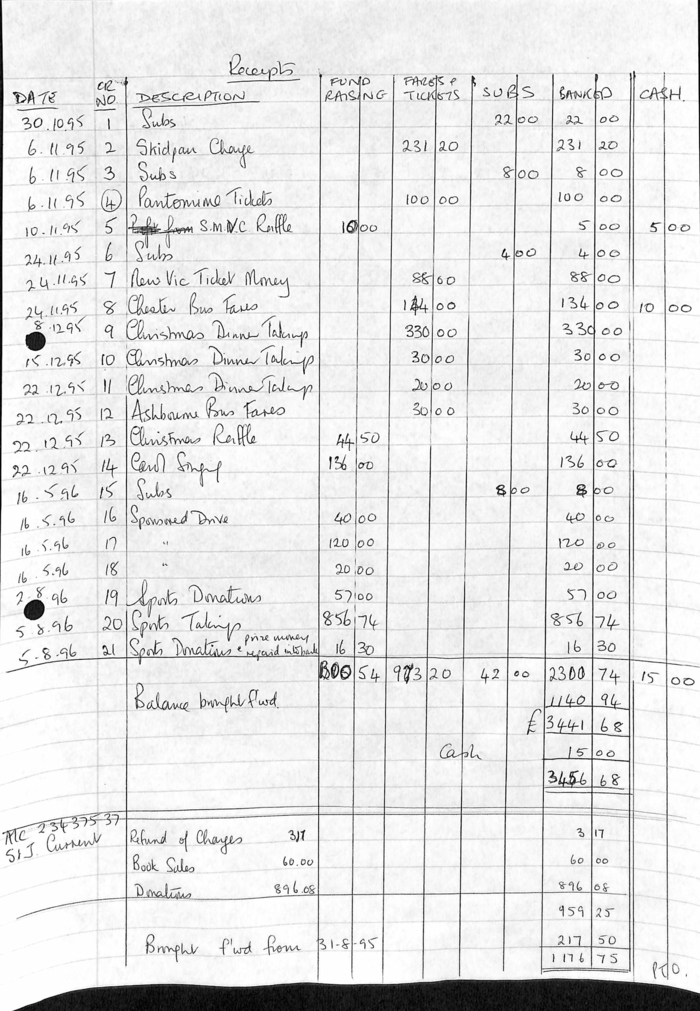 Receipts
DATE CR NO. DESCRIPTION FUND RAISING FARES + TICKETS SUBS BANKED CASH.
30.10.95 1 Subs 22 00 22 00
6.11.95 2 Skidpan Charge 231 20 231 20
6.11.95 3 Subs 8 00 8 00
6.11.95 4 Pantomime Tickets 100 00 100 00
10.11.95 5 S.M.V.C Raffle 10 00 5 00 5 00
24.11.95 6 Subs 4 00 4 00
24.11.95 7 New Vic Ticket Money 88 00 88 00
24.11.95 8 Chester Bus Fares 144 00 134 00 10 00
8.12.95 9 Christmas Dinner Takings 330 00 330 00
15.12.95 10 Christmas Dinner Takings 30 00 30 00
22.12.95 11 Christmas Dinner Takings 20 00 20 00
22.12.95 12 Ashbourne Bus Fares 30 00 30 00
22.12.95 13 Christmas Raffle 44 50 44 50
22.12.95 14 Carol Singing 136 00 136 00
16.5.96 15 Subs 8 00 8 00
16.5.96 16 Sponsored Drive 40 00 40 00
16.5.96 17 " 120 00 120 00
16.5.96 18 " 20 00 20 00
2.8.96 19 Sports Donations 57 00 57 00
5.8.96 20 Sports Takings 856 74 856 74
5.8.96 21 Sports Donations + prize money repaid into bank 16 30 16 30
1300 54 973 20 42 00 2300 74 15 00
Balance brought f'wd 1140 94
£ 3441 68
Cash 15 00
3456 68
A/C 23437537
S/J Current
Refund of Charges 3 17 3 17
Book Sales 60.00 60 00
Donations 896.08 896 08
959 25
Brought f'wd from 31-8-95 217 50
1176 75
P.T.O.